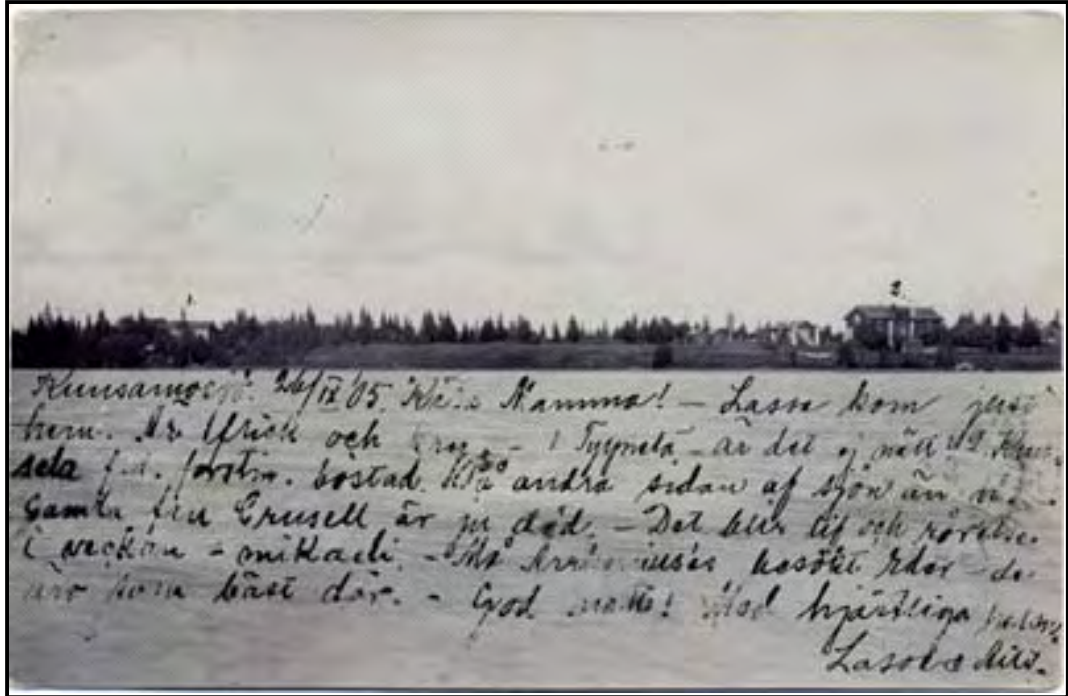 1.
2.
26/IX 05. Kära Mamma! – Lasse kom just
hem. Är frisk och – 1 Tyynelä – är det ej nätt? 2.
sela f.d. forstm. bostad. På andra sidan af sjön än vi.
Gamla fru Grusell är ju död. – Det blir lif och rörelse
i veckan – mikaeli. – besökt Eder – de
äro som bäst där. – God natt! Med hjärtliga
Lasse &